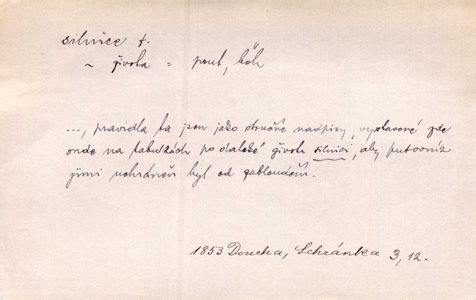 silnice f.
~ života = pouť, běh
..., pravidla ta jsou jako stručné nadpisy, vystavené zde
onde na tabulkách po daleké života silnici, aby putovník
jimi uchráněn byl od zabloudění.
1853 Doucha, Schránka 3, 12.